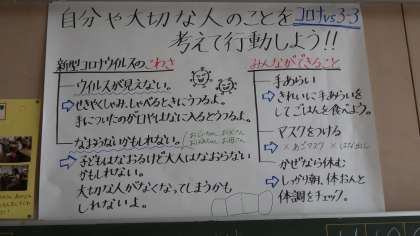 自分や大切な人のことを コロナvs3-3
考えて行動しよう!!
新型コロナウイルスのこわさ
ウイルスが見えない。
⇨せきやくしゃみ、しゃべるときにうつるよ。
手についたのが口やはなに入るとうつるよ。
なおらないかもしれない。
⇨子どもはなおるけど大人はなおらない
かもしれない。
大切な人がなくなってしまうかも
しれないよ。
みんなができること
手あらい
⇨きれいに手あらいを
してごはんを食べよう。
マスクをつける
×あごマスク ×はな出し
かぜなら休む
⇨しっかり朝、体おんと
体調をチェック。